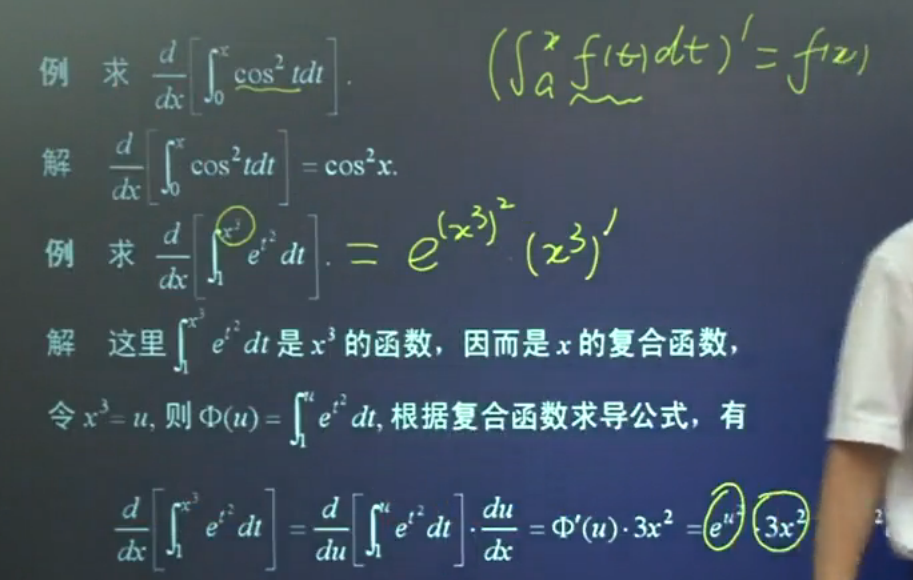 例 求 d/dx[∫₀ˣ cos² tdt]. (∫ₐˣ f(t)dt)′ = f(x)
解 d/dx[∫₀ˣ cos²tdt] = cos²x.
例 求 d/dx[∫₁^(x³) e^(t²) dt]. = e^((x³)²) · (x³)′
解 这里 ∫₁^(x³) e^(t²) dt 是 x³ 的函数，因而是 x 的复合函数，
令 x³ = u, 则 Φ(u) = ∫₁ᵘ e^(t²) dt, 根据复合函数求导公式，有
d/dx[∫₁^(x³) e^(t²) dt] = d/du[∫₁ᵘ e^(t²) dt] · du/dx = Φ′(u) · 3x² = e^(u²) · 3x²